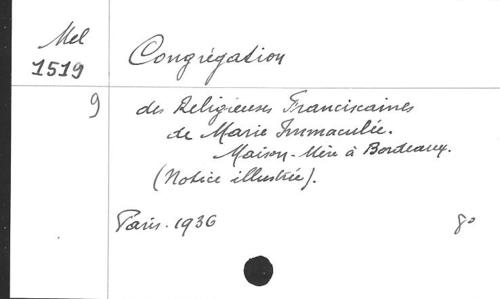 Mel
1519
Congrégation
9
des Religieuses Franciscaines
de Marie Immaculée.
Maison-Mère à Bordeaux.
(Notice illustrée).
Paris. 1936
8º